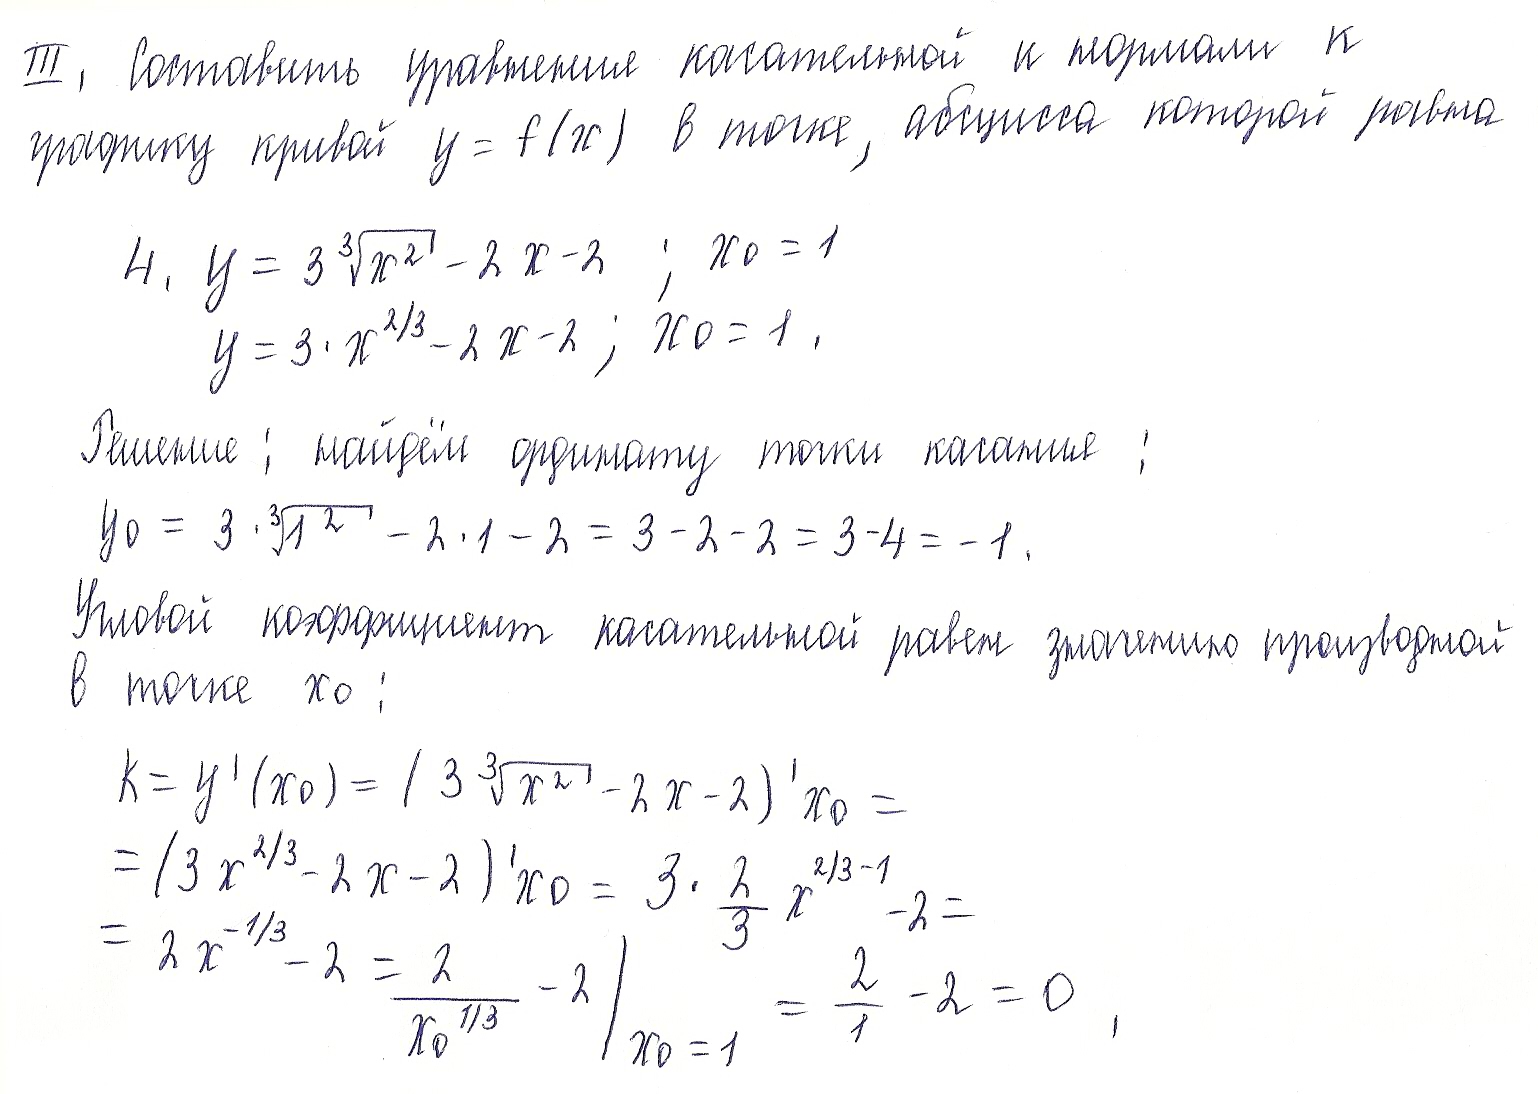 III. Составить уравнения касательной и нормали к
графику кривой y = f(x) в точке, абсцисса которой равна
4. y = 3∛x² - 2x - 2 ; x₀ = 1
y = 3 · x^(2/3) - 2x - 2 ; x₀ = 1.
Решение: найдём ординату точки касания:
y₀ = 3 · ∛1² - 2 · 1 - 2 = 3 - 2 - 2 = 3 - 4 = -1.
Угловой коэффициент касательной равен значению производной
в точке x₀:
K = y'(x₀) = (3∛x² - 2x - 2)'x₀ =
= (3x^(2/3) - 2x - 2)'x₀ = 3 · 2/3 x^(2/3 - 1) - 2 =
= 2x^(-1/3) - 2 = 2/x₀^(1/3) - 2 | x₀ = 1 = 2/1 - 2 = 0,